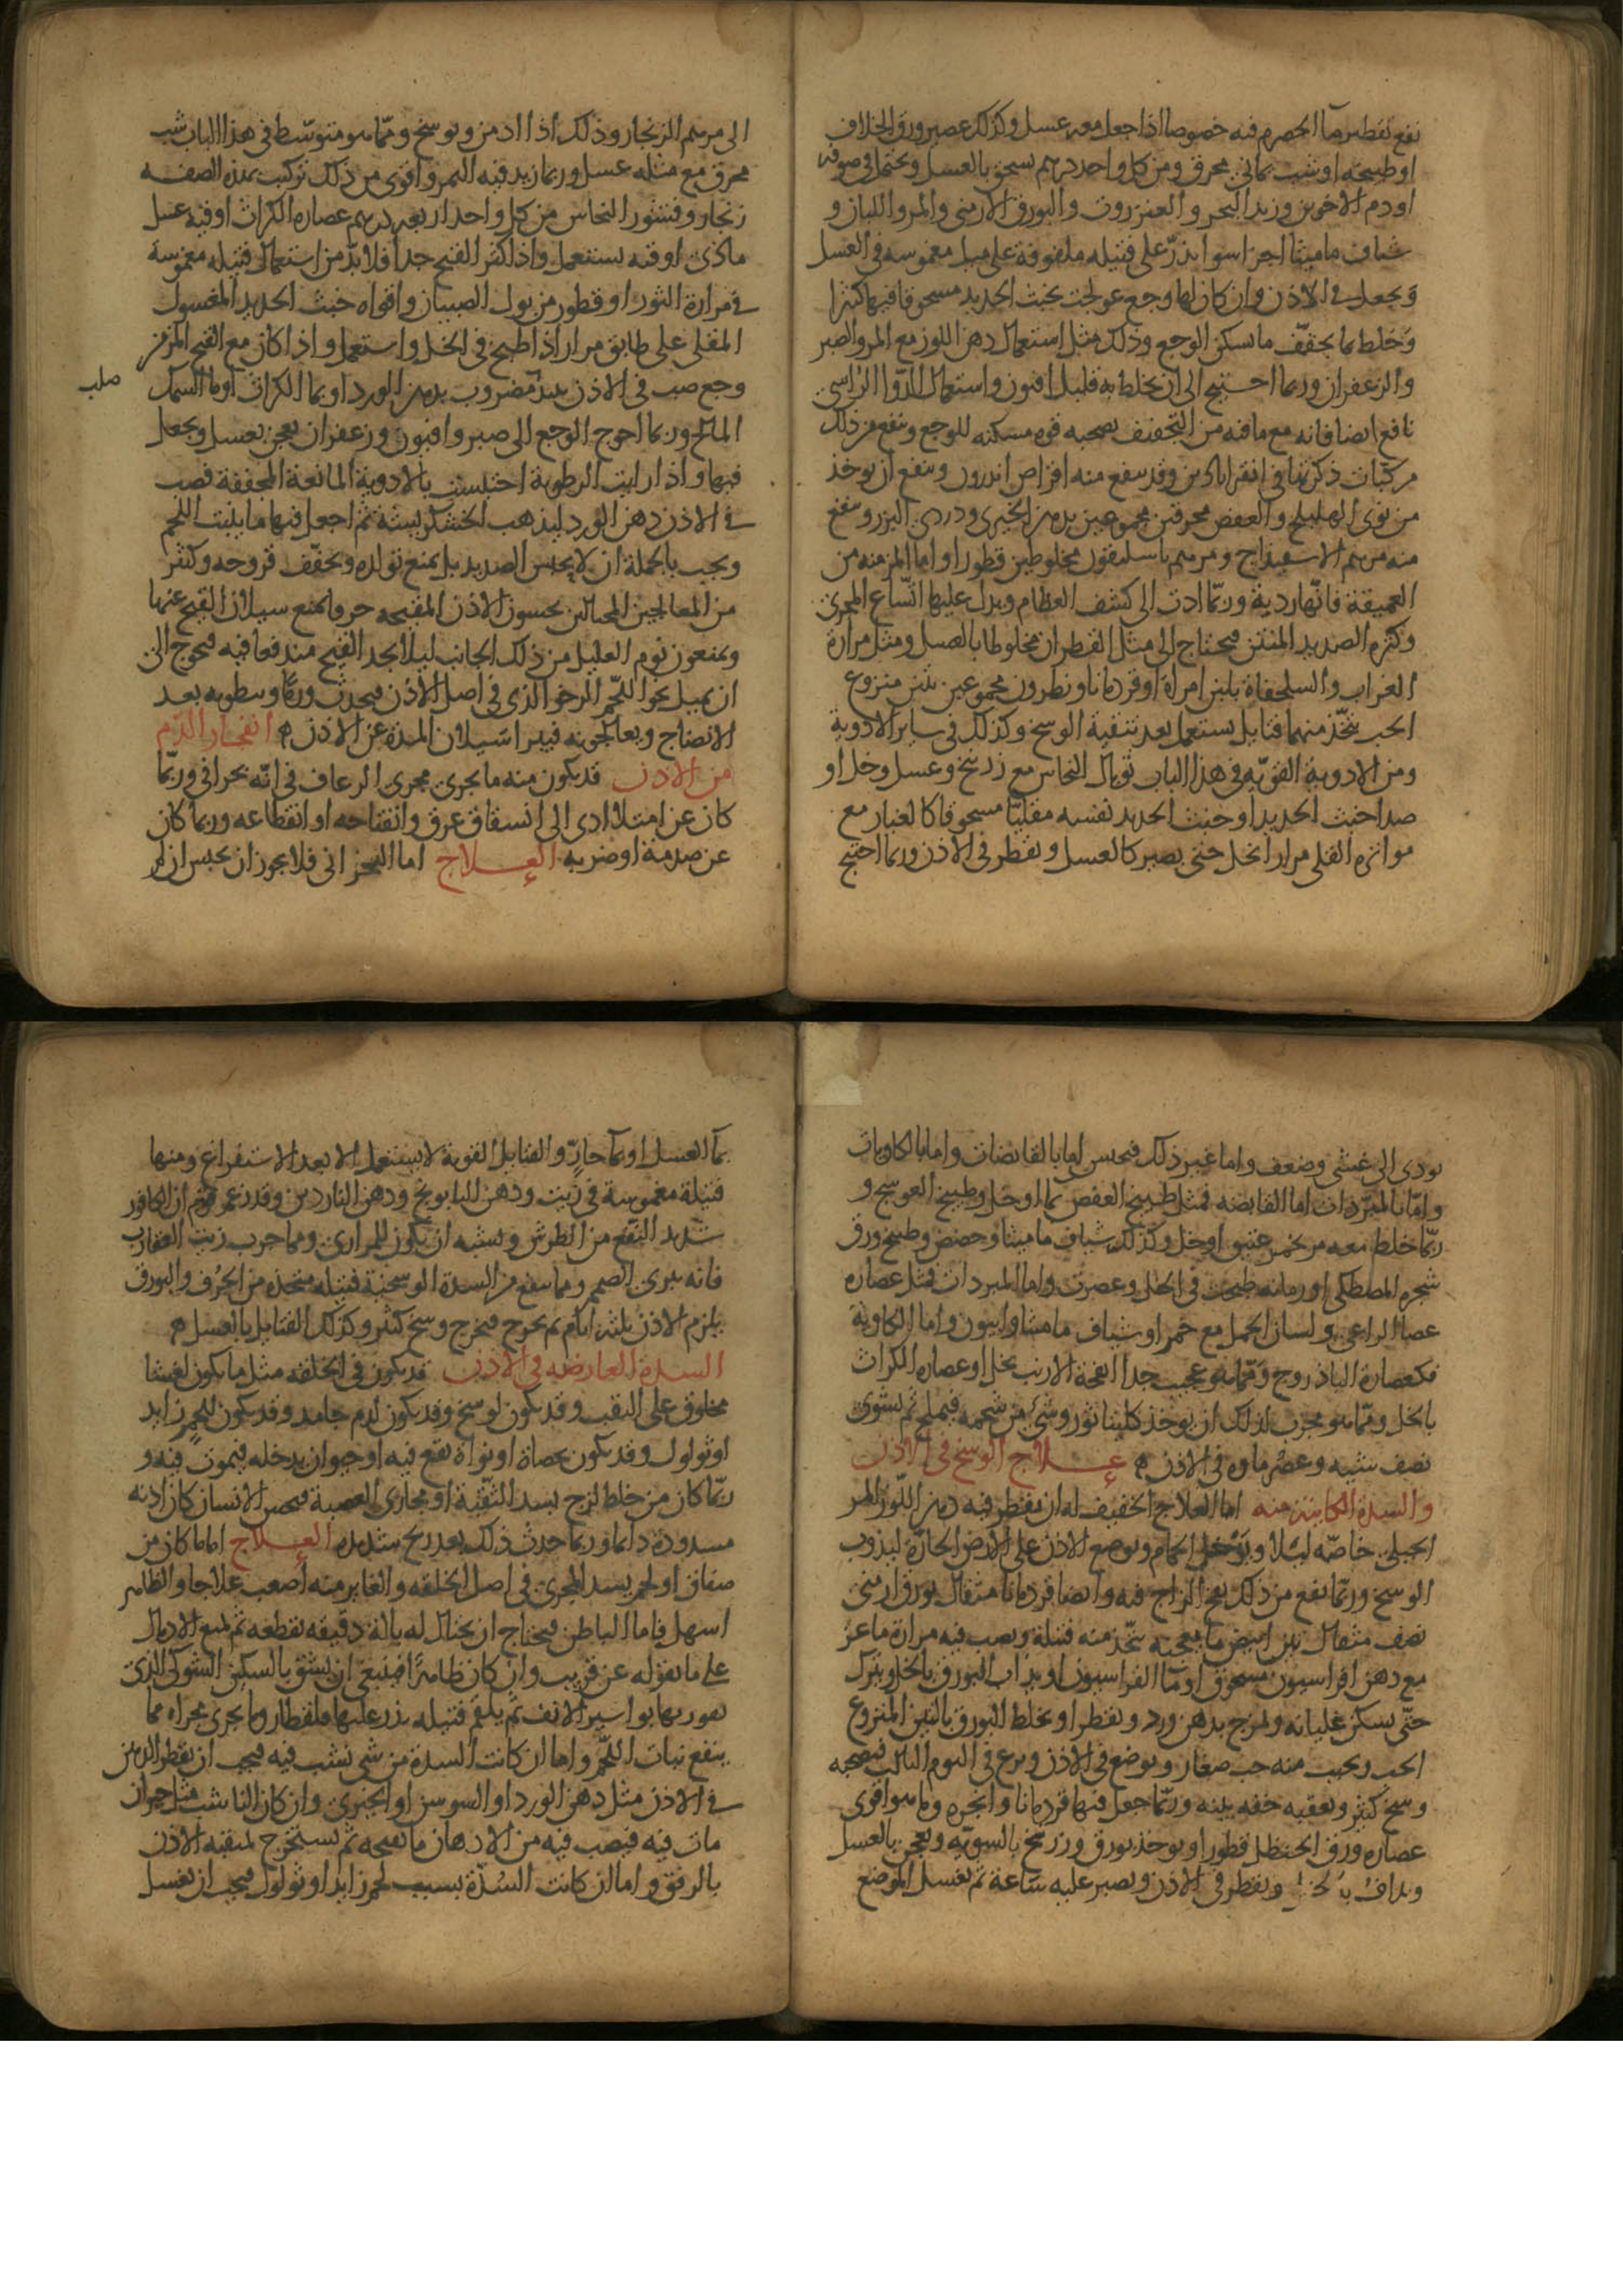 نفع تقطير ماء الحصرم فيه خصوصا اذا جعل معه عسل وكذلك عصير ورق الخلاف
او طبيخه او شب يماني محرق ومن كل واحد درهم يسحق بالعسل ويحتمل في صوفه
او دم الاخوين وزبد البحر والعنزروت والبورق الارمني والمر واللبان و
شياف ماميثا اجزا سوا يذر على فتيله ملفوفة على ميل مغموسه في العسل
ويجعل في الاذن وان كان لها وجع عولجت بخبث الحديد مسحوقا فيها كثيرا
وخلط بما يجفف ما يسكن الوجع وذلك مثل استعمال دهن اللوز مع المر والصبر
والزعفران وربما احتيج الى ان يخلط به قليل افيون واستعمال الدوا الراسي
نافع ايضا فانه مع ما فيه من التجفيف يصحبه قوه مسكنه للوجع وينفع من ذلك
مركبات ذكرتها في انقراباذين وقد ينفع منه اقراص اندرون وينفع ان يوخذ
من نوى الهليلج والعفص محرقين مجموعين بدهن الخيرى ودردى البزر وينفع
منه مرهم الاسفيداج ومرهم باسليقون مخلوطين قطورا واما المزمنه من
العميقة فانها ردية وربما ادت الى كشف العظام ويدل عليها اتساع المجرى
وكثره الصديد المنتن فيحتاج الى مثل القطران مخلوطا بالعسل ومثل مرارة
الغراب والسلحفاة بلبن امراة او قردمانا ونطرون مجموعين بتين منزوع
الحب يتخذ منهما فتايل يستعمل بعد تنقية الوسخ وكذلك في ساير الادوية
ومن الادوية القويه في هذا الباب توبال النحاس مع زرنيخ وعسل وخل او
صدا خبث الحديد او خبث الحديد نفسه مقليا مسحوقا كالغبار مع
مواتره القلى مرارا بخل حتى يصير كالعسل ويقطر في الاذن وربما احتيج
الى مرهم الزنجار وذلك اذا ازمن وتوسخ ومما هو متوسط في هذا الباب شب
محرق مع مثله عسل وربما زيد فيه المر واقوى من ذلك تركيب بهذه الصفه
زنجار وقشور النحاس من كل واحد اربعه دراهم عصاره الكراث اوقيه عسل
ماذى اوقيه يستعمل واذا كثر القيح جدا فلا بد من استعمال فتيله مغموسة
في مرارة الثور او قطور من بول الصبيان واقواه خبث الحديد المغسول
المقلى على طابق مرارا اذا طبخ في الخل واستعمل واذا كان مع القيح المزمن
صلب
وجع صب في الاذن نبيذ مضروب بدهن الورد او بما الكراث او ما السمك
المالح وربما احوج الوجع الى صبر وافيون وزعفران يعجن بعسل ويجعل
فيها واذا رايت الرطوبة احتبست بالادوية المانعة المجففة فصب
في الاذن دهن الورد ليذهب الخشكريشة ثم اجعل فيها ما ينبت اللحم
ويجب بالجملة ان لا يحبس الصديد بل يمنع تولده ويجفف قروحه وكثير
من المعالجين المحتالين يحسون الاذن المقيحه خرقا يمنع سيلان القيح عنها
ويمنعون نوم العليل من ذلك الجانب ليلا يجد القيح مندفعا فيه فيحوج الى
ان يميل نحو اللحم الرخو الذى في اصل الاذن فيحدث ورما ويبطونه بعد
الانضاج ويعالجونه فيبرا سيلان المدة عن الاذن ه انفجار الدم
من الاذن قد يكون منه ما يجرى مجرى الرعاف في انه بحراني وربما
كان عن امتلا ادى الى انشقاق عرق وانفتاحه او انقطاعه وربما كان
عن صدمة او ضربه العلاج اما البحراني فلا يجوز ان يحبس ان لم
يودى الى غشى وضعف واما غير ذلك فيحبس اما بالقابضات واما بالكاويات
واما بالمبردات اما القابضه فمثل طبيخ العفص بما او خل وطبيخ العوسج و
ربما خلط معه مر بخمر عتيق او خل وكذلك شياف ماميثا وحضض وطبيخ ورق
شجره المصطكى او رمانه طبخت في الخل وعصرت واما المبردات فمثل عصاره
عصا الراعى ولسان الحمل مع خمر او شياف ماميثا وافيون واما الكاوية
فكعصارة الباذروج ومما هو عجيب جدا انفحة الارنب بخل او عصاره الكراث
بالخل ومما هو مجرب لذلك ان يوخذ كليتا ثور وشى من شحمه فيملح ثم يشوى
نصف شيه وعصر ماوه في الاذن ه علاج الوسخ في الاذن
والسدة الكاينة منه اما العلاج الخفيف له ان يقطر فيه دهن اللوز المر
الجبلى خاصه ليلا ويدخل الحمام ويوضع الاذن على الارض الحارة ليذوب
الوسخ وربما نفع من ذلك نفخ الزاج فيه وايضا قردمانا مثقال بورق ارمنى
نصف مثقال تين ابيض ما يعجنه يتخذ منه فتيلة ويصب فيه مرارة ماعز
مع دهن افراسيون مسحوق او ما الفراسيون او يذاب البورق بالخل ويترك
حتى يسكن غليانه ويمزج بدهن ورد ويقطر او يخلط البورق بالتين المنزوع
الحب ويحبب منه حب صغار ويوضع في الاذن وينزع في اليوم الثالث فيصحبه
وسخ كثير ويعقبه خفه بينه وربما جعل فيها قردمانا وانجره ومما هو اقوى
عصاره ورق الحنظل قطورا او يوخذ بورق وزرنيخ بالسويه ويعجن بالعسل
ويداف بالخل ويقطر في الاذن ويصبر عليه ساعة ثم يغسل الموضع
بما العسل او بما حار والفتايل القوية لا يستعمل الا بعد الاستفراغ ومنها
فتيلة مغموسة في زيت ودهن البابونج ودهن الناردين وقد زعم قوم ان الكافور
شديد النفع من الطرش ويشبه ان يكون للمرارى ومما جرب زيت العقارب
فانه يبرى الصمم ومما ينفع من السدة الوسخية فتيله متخذه من الحرف والبورق
يلزم الاذن ثلثه ايام ثم يخرج فيخرج وسخ كثير وكذلك الفتايل بالعسل ه
السدة العارضه في الاذن قد يكون في الخلقه مثل ما يكون لغشا
مخلوق على الثقب وقد يكون لوسخ وقد يكون لدم جامد وقد يكون للحم زايد
او ثولول وقد يكون لحصاة او نواة تقع فيه او حيوان يدخله فيموت فيه و
ربما كان من خلط لزج يسد الثقبة او مجارى العصبة فيحس الانسان كان اذنه
مسدودة دايما وربما حدث ذلك بعد ريح شديده العلاج اما ما كان من
صفاق او لحم يسد المجرى في اصل الخلقه والغاير منه اصعب علاجا والظاهر
اسهل فاما الباطن فيحتاج ان يحتال له بالة دقيقه تقطعه ثم يمنع الاندمال
على ما نقوله عن قريب وان كان ظاهرا فينبغى ان يشق بالسكين الشوكى الذى
يقور بها بواسير الانف ثم يلقم فتيله يذر عليها قلقطار وما يجرى مجراه مما
يمنع نبات اللحم واما ان كانت السدة من شى نشب فيه فيجب ان يقطر الدهن
في الاذن مثل دهن الورد او السوسن او الخيرى وان كان الناشب مثل حيوان
مات فيه فيصب فيه من الادهان ما يفسخه ثم يستخرج لمنقيه الاذن
بالرفق واما ان كانت السدة بسبب لحم زايد او ثولول فيجب ان يغسل